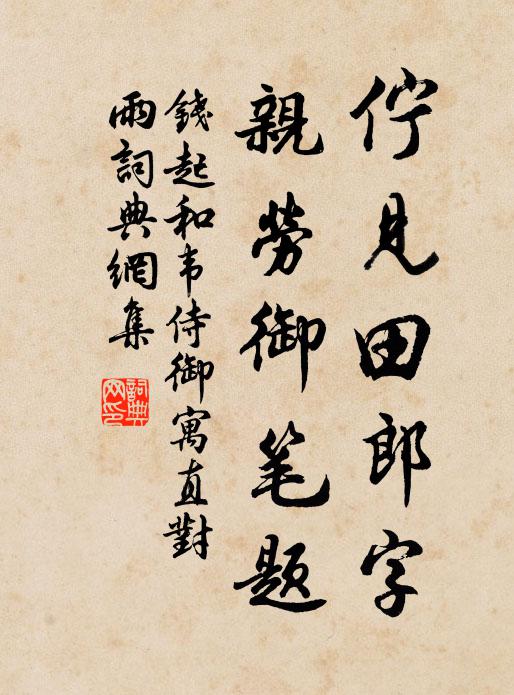 佇見田郎字
親勞御笔题
錢起和韦侍御寓直對
雨詞典網集
詞典网印